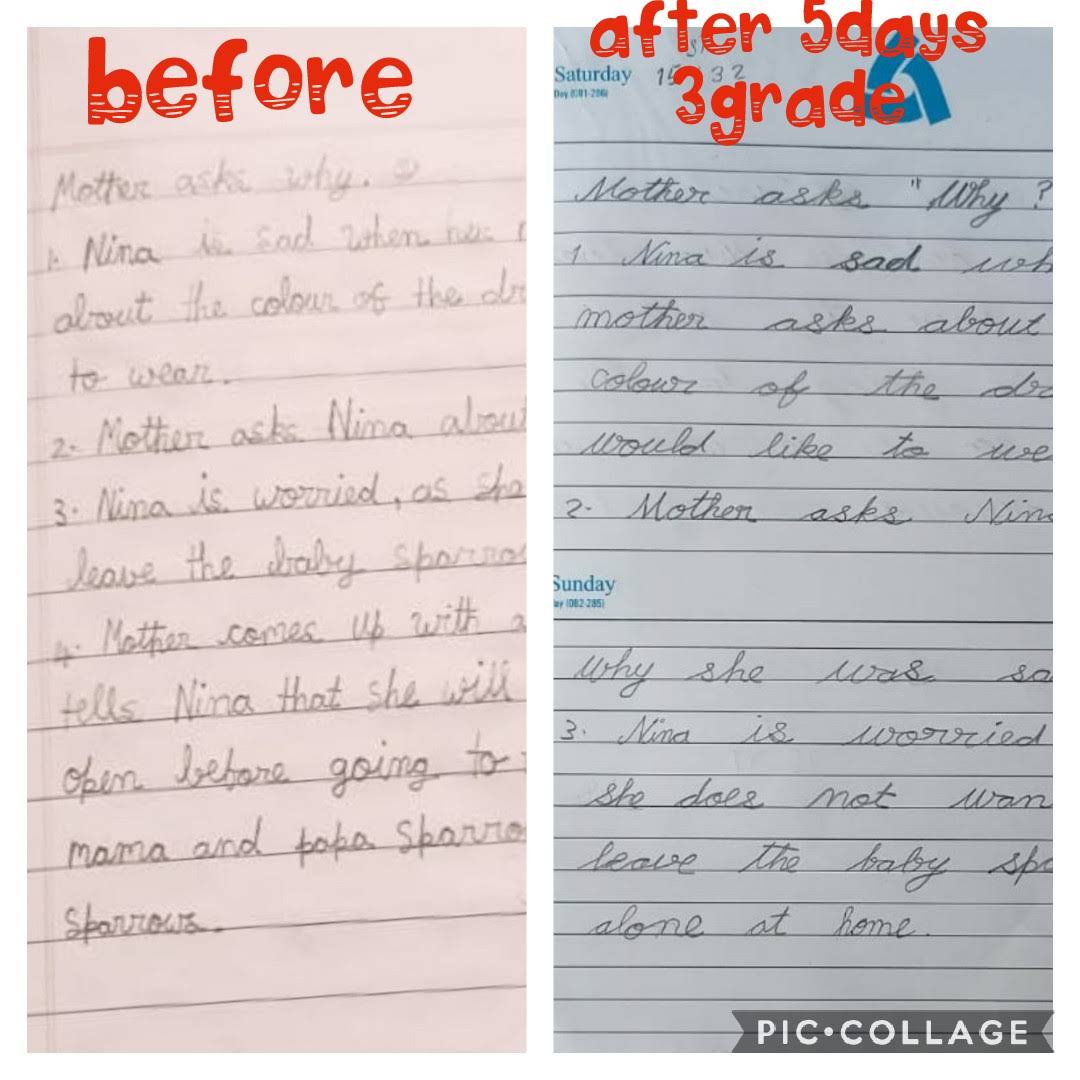 before
Mother asks why.
1. Nina is sad when her
about the colour of the dr
to wear.
2. Mother asks Nina about
3. Nina is worried, as she
leave the baby sparro
4. Mother comes up with a
tells Nina that she will
open before going to
mama and papa sparro
sparrows.
after 5days
3grade
Saturday
Day (081-286)
Mother asks "Why?
1 Nina is sad wh
mother asks about
colour of the dr
would like to we
2. Mother asks Nin
Sunday
ay (082-285)
why she was sa
3. Nina is worried
she does not wan
leave the baby spa
alone at home.
PIC•COLLAGE